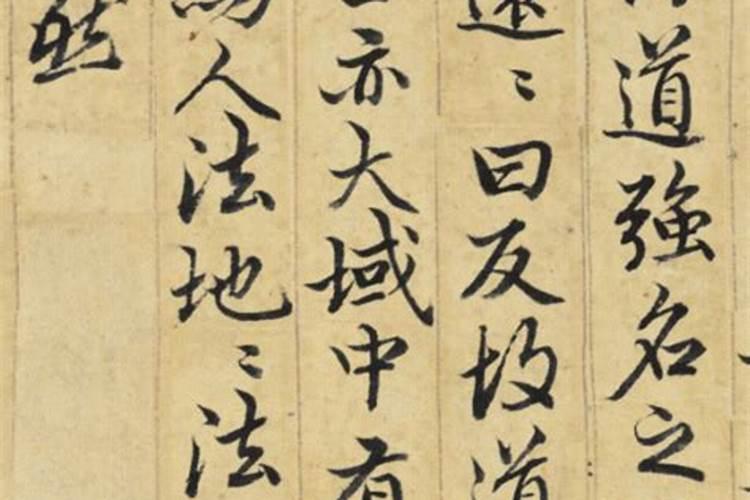 道強名之
遠〻曰反故道
亦大域中有
焉人法地〻法
然